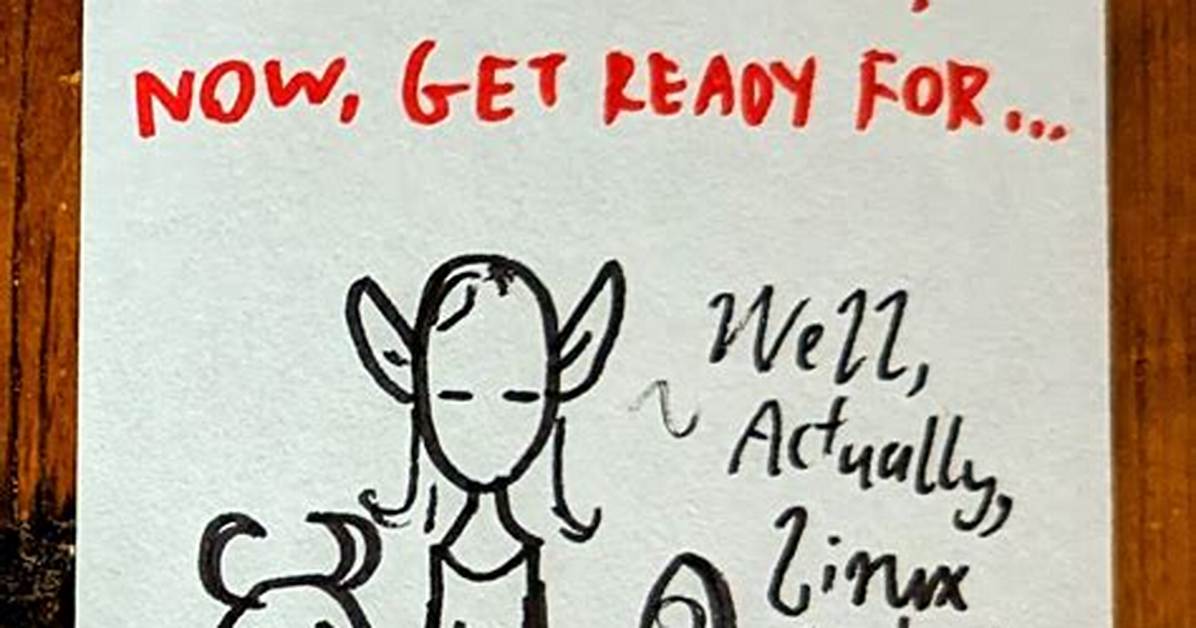 NOW, GET READY FOR...
Well,
Actually,
Linux